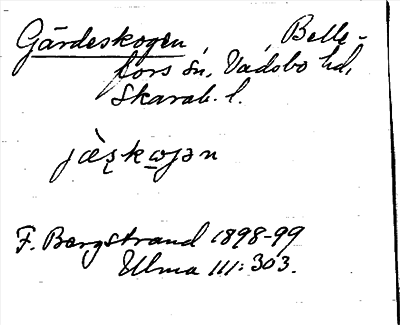 Gärdeskogen Belle-
fors sn, Vadsbo hd,
Skarab. l.
jæ̀ʂkɷjən
F. Bergstrand 1898-99
Ulma 111:303.